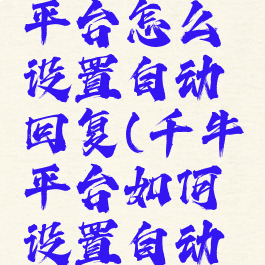 平台怎么
设置自动
回复(千牛
平台如何
设置自动